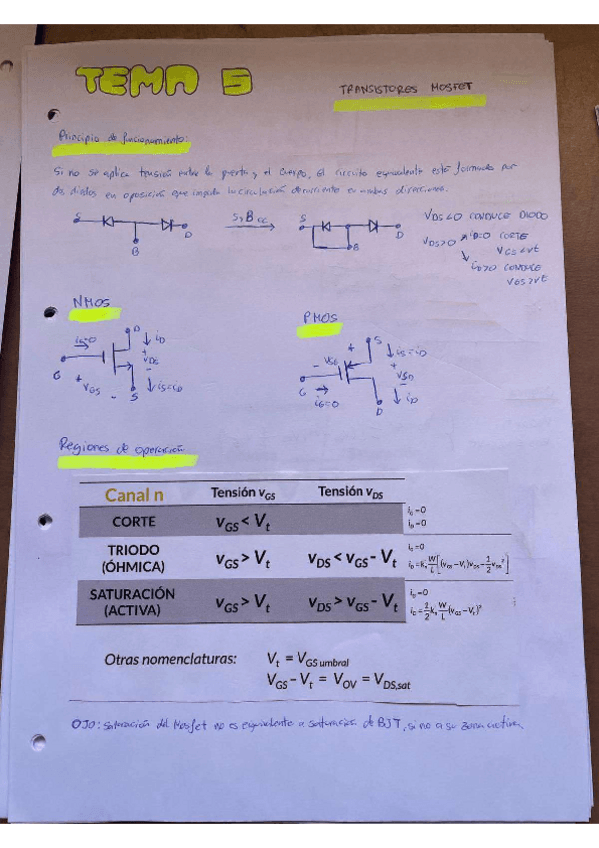 TEMA 5
TRANSISTORES MOSFET
Principio de funcionamiento:
Si no se aplica tensión entre la puerta y el cuerpo, el circuito equivalente está formado por
dos diodos en oposición que impide la circulación de corriente en ambas direcciones.
S B D
S,B cc
S B D
VDS<0 CONDUCE DIODO
VDS>0 iD=0 CORTE
VGS<Vt
iD>0 CONDUCE
VGS>Vt
NMOS
PMOS
iG=0 D iD
G + VGS - + VDS - iS=iD
S
- VSG + S iS=iD
G iG=0 + VSD - iD
D
Regiones de operación
Canal n Tensión vGS Tensión vDS
CORTE vGS < Vt iG=0
iD=0
TRIODO (ÓHMICA) vGS > Vt vDS < vGS - Vt iG=0
iD=kn W/L [(vGS-Vt)vDS - 1/2 vDS²]
SATURACIÓN (ACTIVA) vGS > Vt vDS > vGS - Vt iG=0
iD= 1/2 kn W/L (vGS-Vt)²
Otras nomenclaturas: Vt = VGS umbral
VGS - Vt = VOV = VDS,sat
OJO: Saturación del Mosfet no es equivalente a saturación de BJT, si no a su zona activa.